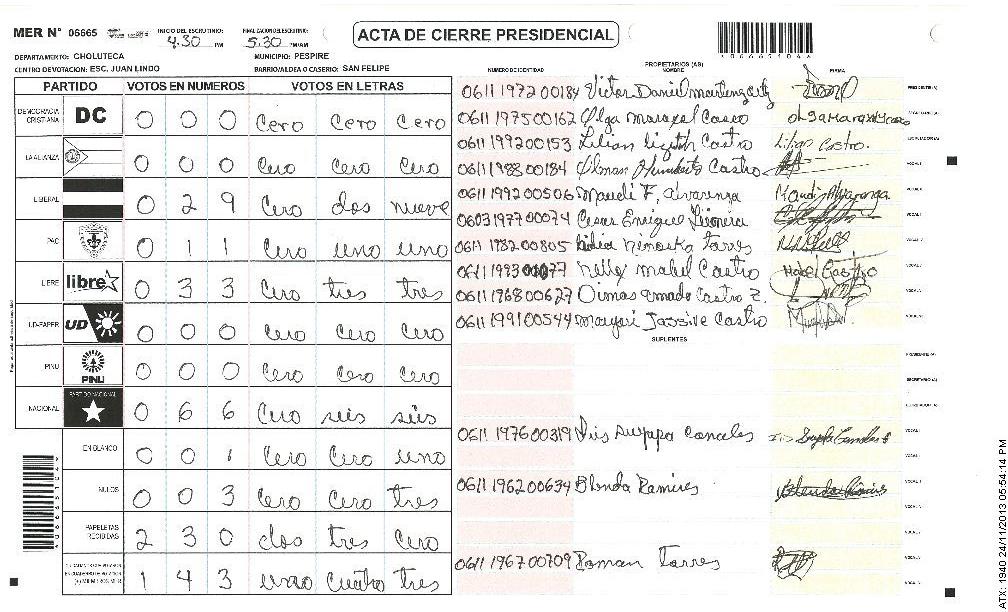 MER N° 06665 INICIO DEL ESCRUTINIO 4:30 PM FINAL. CION DEL ESCRUTINIO 5:30 PM/AM
ACTA DE CIERRE PRESIDENCIAL
DEPARTAMENTO: CHOLUTECA MUNICIPIO: PESPIRE
CENTRO DE VOTACION: ESC. JUAN LINDO BARRIO/ALDEA O CASERIO: SAN FELIPE
PARTIDO VOTOS EN NUMEROS VOTOS EN LETRAS
DEMOCRACIA CRISTIANA DC 0 0 0 Cero Cero Cero
LA ALIANZA 0 0 0 Cero Cero Cero
LIBERAL 0 2 9 Cero dos nueve
PAC 0 1 1 Cero uno uno
LIBRE libre 0 3 3 Cero tres tres
UD-FAPER UD 0 0 0 Cero Cero Cero
PINU PINU 0 0 0 Cero Cero Cero
NACIONAL PARTIDO NACIONAL 0 6 6 Cero seis seis
EN BLANCO 0 0 1 Cero Cero uno
NULOS 0 0 3 Cero Cero tres
PAPELETAS RECIBIDAS 2 3 0 dos tres Cero
1 4 3 uno cuatro tres
PROPIETARIOS (AS)
NUMERO DE IDENTIDAD NOMBRE FIRMA
0611 1972 00184 Victor Daniel
0611 1975 00162 Olga maragel Casco
0611 1992 00153 Lilian Lizeth Castro Lilian Castro.
0611 1988 00184 Humberto Castro
0611 1992 00506 Maudi F. Alvarenga
0603 1977 00074 Cesar Enrique
0611 1982 00805 nimoska torres
0611 1993 00077 nelly mabel Castro Mabel Castro
0611 1968 00627 Dimas amado Castro Z.
0611 1991 00544 Castro
SUPLENTES
0611 1976 00319 suyapa
0611 1962 00634 Blenda Ramires
0611 1967 00709 Roman torres
ATX: 1940 24/11/2013 05:54:14 PM